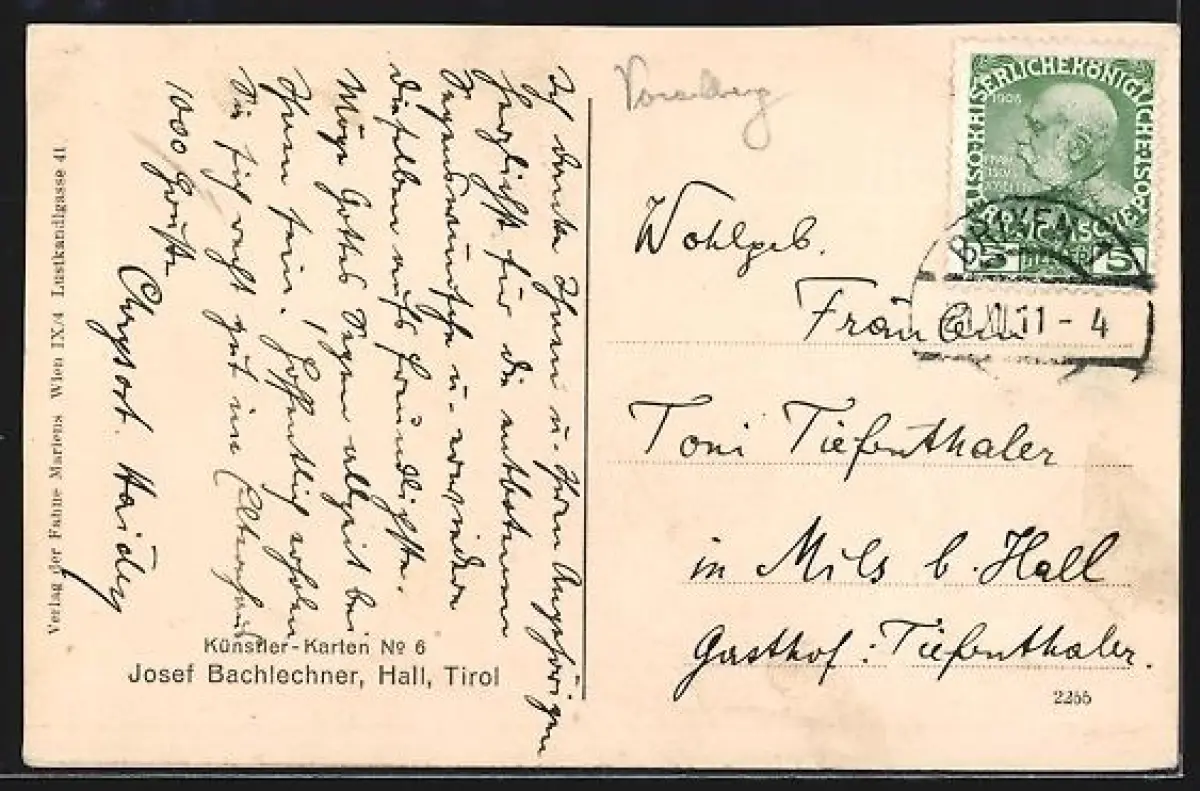 Ich danke Ihnen u. Ihren Angehörigen
herzlichst für die entbotenen
Segenswünsche u. erwidere
dieselben aufs freundlichste.
Möge Gottes Segen allzeit bei
Ihnen sein. Hoffentlich erholen
Sie sich recht gut im Elternhaus
1000 Grüße
Chrysost.
Verlag der Fahne Mariens Wien IX/4 Lustkandlgasse 41.
Künstler-Karten № 6
Josef Bachlechner, Hall, Tirol
Vorarlberg
KAISERLICHE KÖNIGLICHE ÖSTERREICHISCHE
1908
5 HELLER 5
11 - 4
Wohlgeb.
Fräulein
Toni Tiefenthaler
in Mils b. Hall
Gasthof: Tiefenthaler.
2255